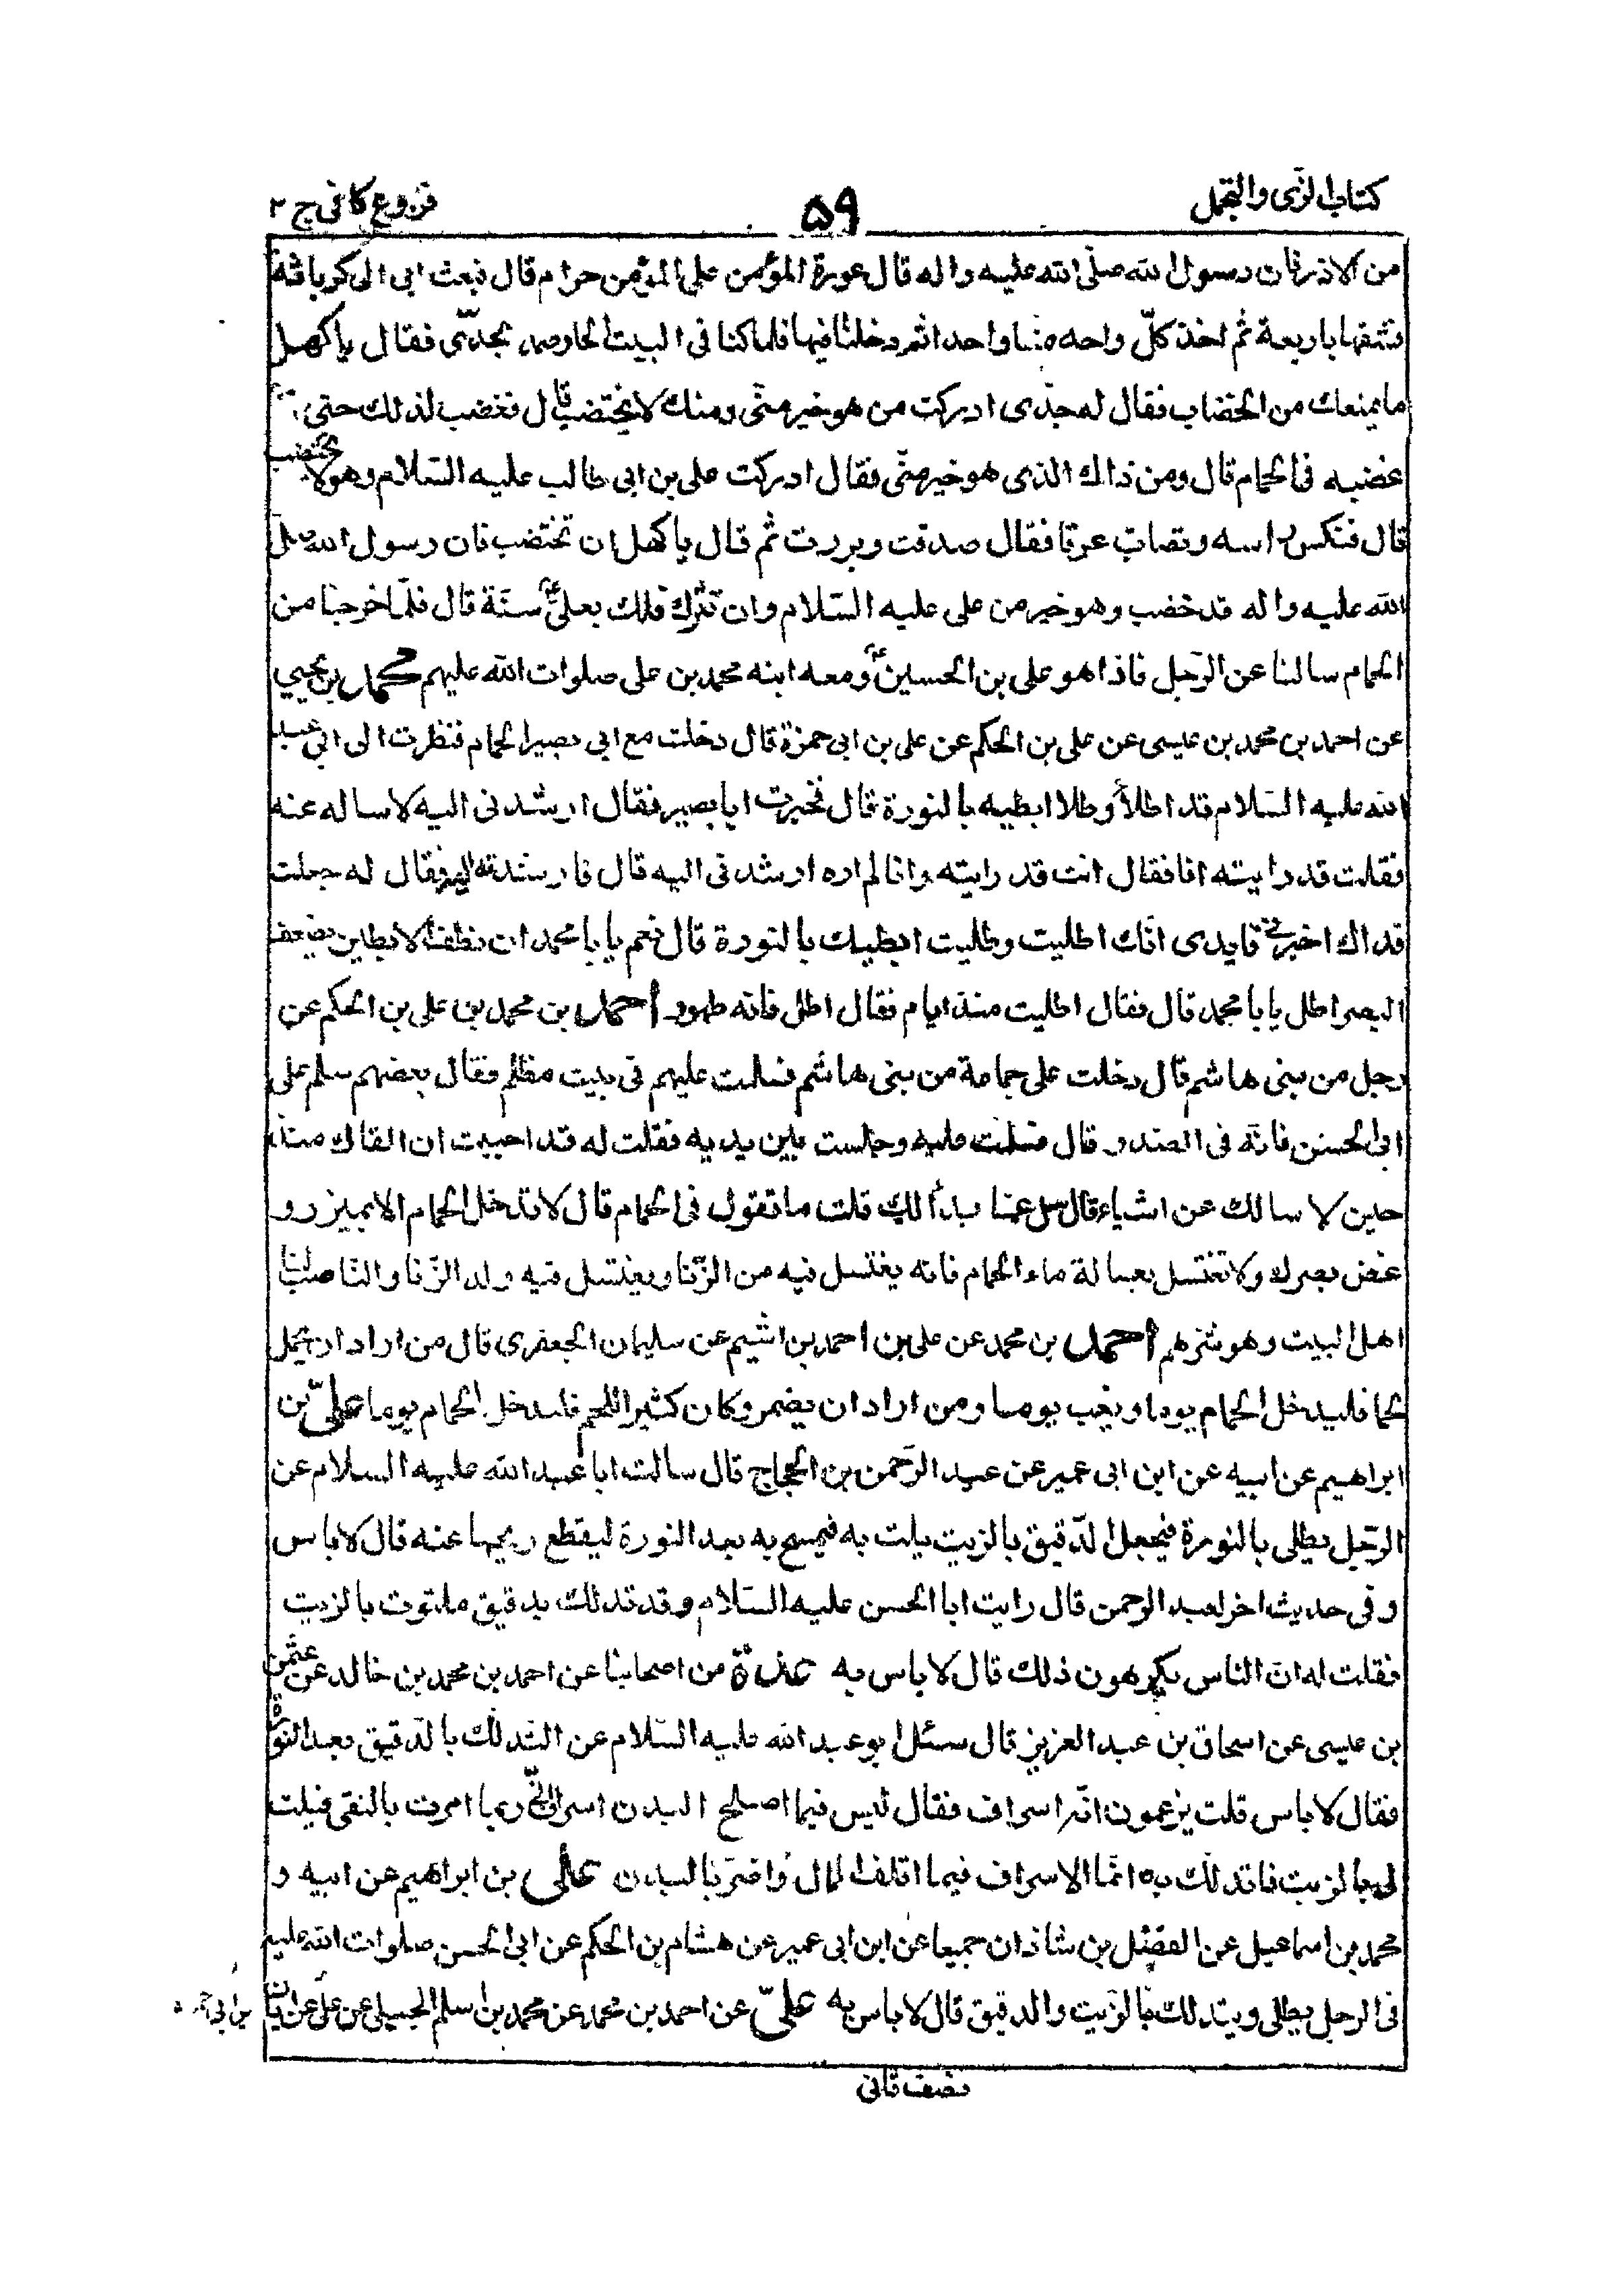 كتاب الزي والتجمل
۵۹
فروع كافي ج ۲
من الازر فان رسول الله صلّى الله عليه واله قال عورة المؤمن على المؤمن حرام قال فبعث ابى الى كرباسة
فشقها باربعة ثم اخذ كلّ واحد منا واحدا ثم دخلنا فيها فلما كنا فى البيت الحار صمد لجدّى فقال ياكهل
مايمنعك من الخضاب فقال له جدّى ادركت من هو خير منّى ومنك لا يختضب قال فغضب لذلك حتى
غضبه فى الحمام قال ومن ذاك الذى هو خير منّى فقال ادركت على بن ابى طالب عليه السّلام وهو لا يختضب
قال فنكس راسه وتصاب عرقا فقال صدقت وبررت ثم قال ياكهل ان تختضب فان رسول الله صلى
الله عليه واله قد خضب وهو خير من على عليه السّلام وان تترك فلك بعلىّ ع سنّة قال فلمّا خرجنا من
الحمام سالنا عن الرّجل فاذا هو على بن الحسين ع ومعه ابنه محمد بن على صلوات الله عليهم محمد بن يحيي
عن احمد بن محمد بن عيسى عن على بن الحكم عن على بن ابى حمزة قال دخلت مع ابى بصير الحمام فنظرت الى ابى عبد
الله عليه السّلام قد اطلا وطلا ابطيه بالنورة قال فخبرت ابا بصير فقال ارشدنى اليه لاساله عنه
فقلت قد رايته انا فقال انت قد رايته وانا لم اره ارشدنى اليه قال فارشدته اليه فقال له جعلت
فداك اخبرنى قايدى انّك اطليت وطليت ابطيك بالنورة قال نعم يا با محمد ان نطف الابطين يضعف
البصر اطل يا با محمد قال فقال اطليت منذ ايام فقال اطل فانه طهور احمد بن محمد بن على بن الحكم عن
رجل من بنى هاشم قال دخلت على جماعة من بنى هاشم فسلمت عليهم فى بيت مظلم فقال بعضهم سلم على
ابى الحسن فانّه فى الصدر قال فسلمت عليه وجلست بين يديه فقلت له قد احببت ان القاك منذ
حين لا سالك عن اشياء قال سل عمّا بدأ لك قلت ما تقول فى الحمام قال لا تدخل الحمام الا بميزر و
غض بصرك ولا تغتسل بغسالة ماء الحمام فانه يغتسل فيه من الزّنا ويغتسل فيه ولد الزّنا والنّاصب لنا
اهل البيت وهو شرهم احمد بن محمد عن على بن احمد بن اشيم عن سليمان الجعفرى قال من اراد ان يحمل
لحما فليدخل الحمام يوما ويغب يوما ومن اراد ان يضمر وكان كثير اللّحم فليدخل الحمام يوما علىّ بن
ابراهيم عن ابيه عن ابن ابى عمير عن عبد الرّحمن بن الحجاج قال سالت ابا عبد الله عليه السلام عن
الرّجل يطلى بالنورة فيجعل الدّقيق بالزيت يلت به فيمسح به بعد النورة ليقطع ريحها عنه قال لا باس
وفى حديث اخر لعبد الرحمن قال رايت ابا الحسن عليه السّلام وقد تدلك بدقيق ملتوت بالزيت
فقلت له ان الناس يكرهون ذلك قال لا باس به عدّة من اصحابنا عن احمد بن محمد بن خالد عن عثمن
بن عيسى عن اسحاق بن عبد العزيز قال سئل ابو عبد الله عليه السّلام عن التدلّك بالدّقيق بعد النورة
فقال لا باس قلت يزعمون انّه اسراف فقال ليس فيما اصلح البدن اسراف انّى ربما امرت بالنقى فيلت
لى بالزيت فاتدلّك به انّما الاسراف فيما اتلف المال واضرّ بالبدن علىّ بن ابراهيم عن ابيه و
محمد بن اسماعيل عن الفضل بن شاذان جميعا عن ابن ابى عمير عن هشام بن الحكم عن ابى الحسن صلوات الله عليه
فى الرجل يطلى ويتدلك بالزّيت والدقيق قال لا باس به علىّ عن احمد بن محمد عن محمد بن اسلم الجبيلى عن على عن ابان
نصف ثانى